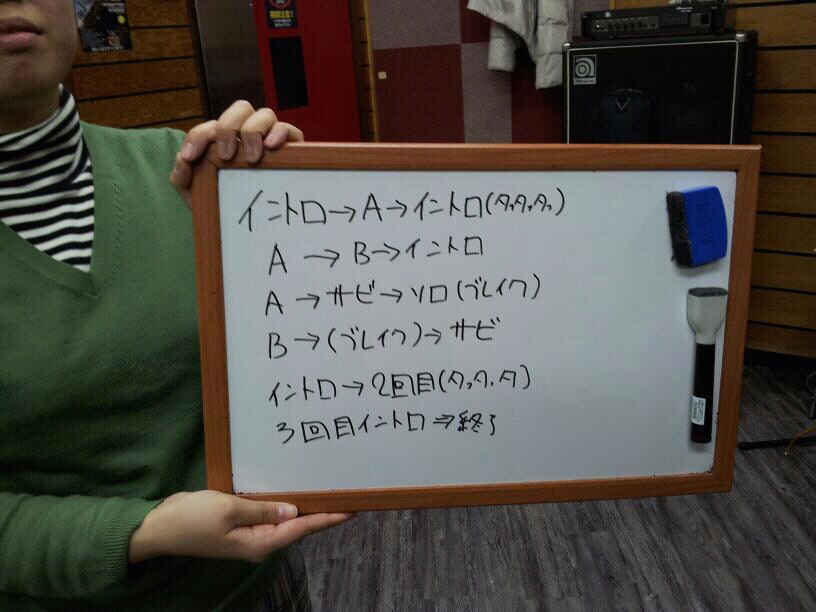 イントロ→A→イントロ(タッタッタッ)
A→B→イントロ
A→サビ→ソロ(ブレイク)
B→(ブレイク)→サビ
イントロ→2回目(タッタッタ)
3回目イントロ⇒終了